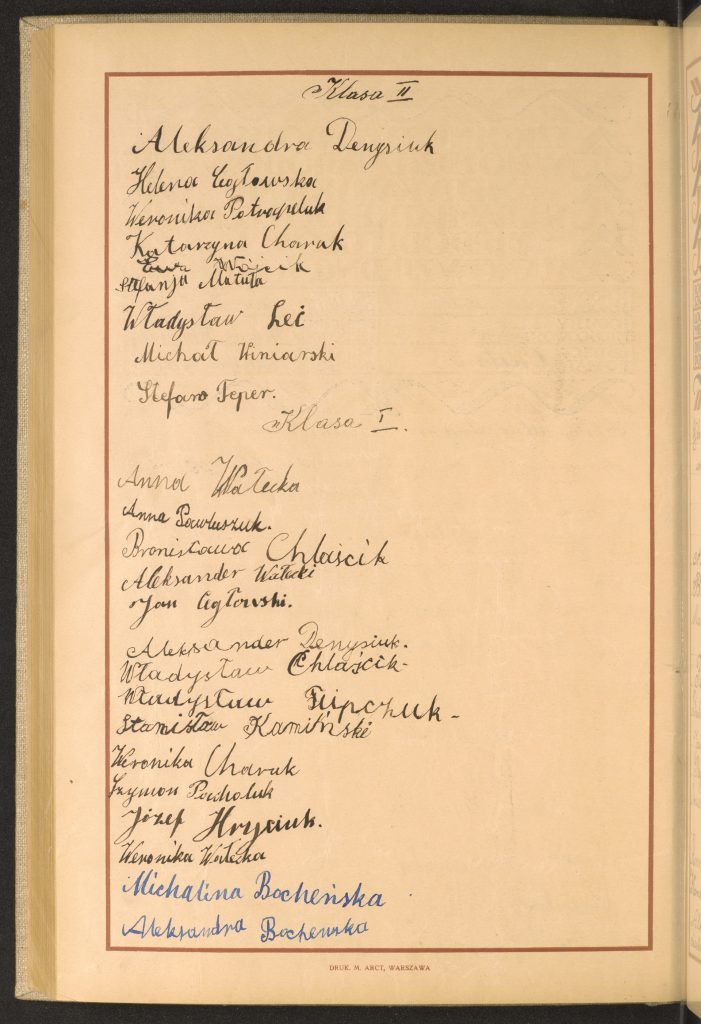 Klasa II
Aleksandra Denysiuk
Helena Cegłowska
Weronika Potrapeluk
Katarzyna Charuk
Ewa Wójcik
Stefanja Matuła
Władysław Łeć
Michał Winiarski
Stefan Feper.
Klasa I.
Anna Wałecka
Anna Pawluszuk.
Bronisława Chlaścik
Aleksander Wałecki
Jan Cegłowski.
Aleksander Denysiuk.
Władysław Chlaścik-
Władysław Filipczuk-
Stanisław Kamiński
Weronika Charuk
Szymon Pacholuk
Józef Hryciuk.
Weronika Wałecka
Michalina Bocheńska
Aleksandra Bochenska
DRUK. M. ARCT, WARSZAWA